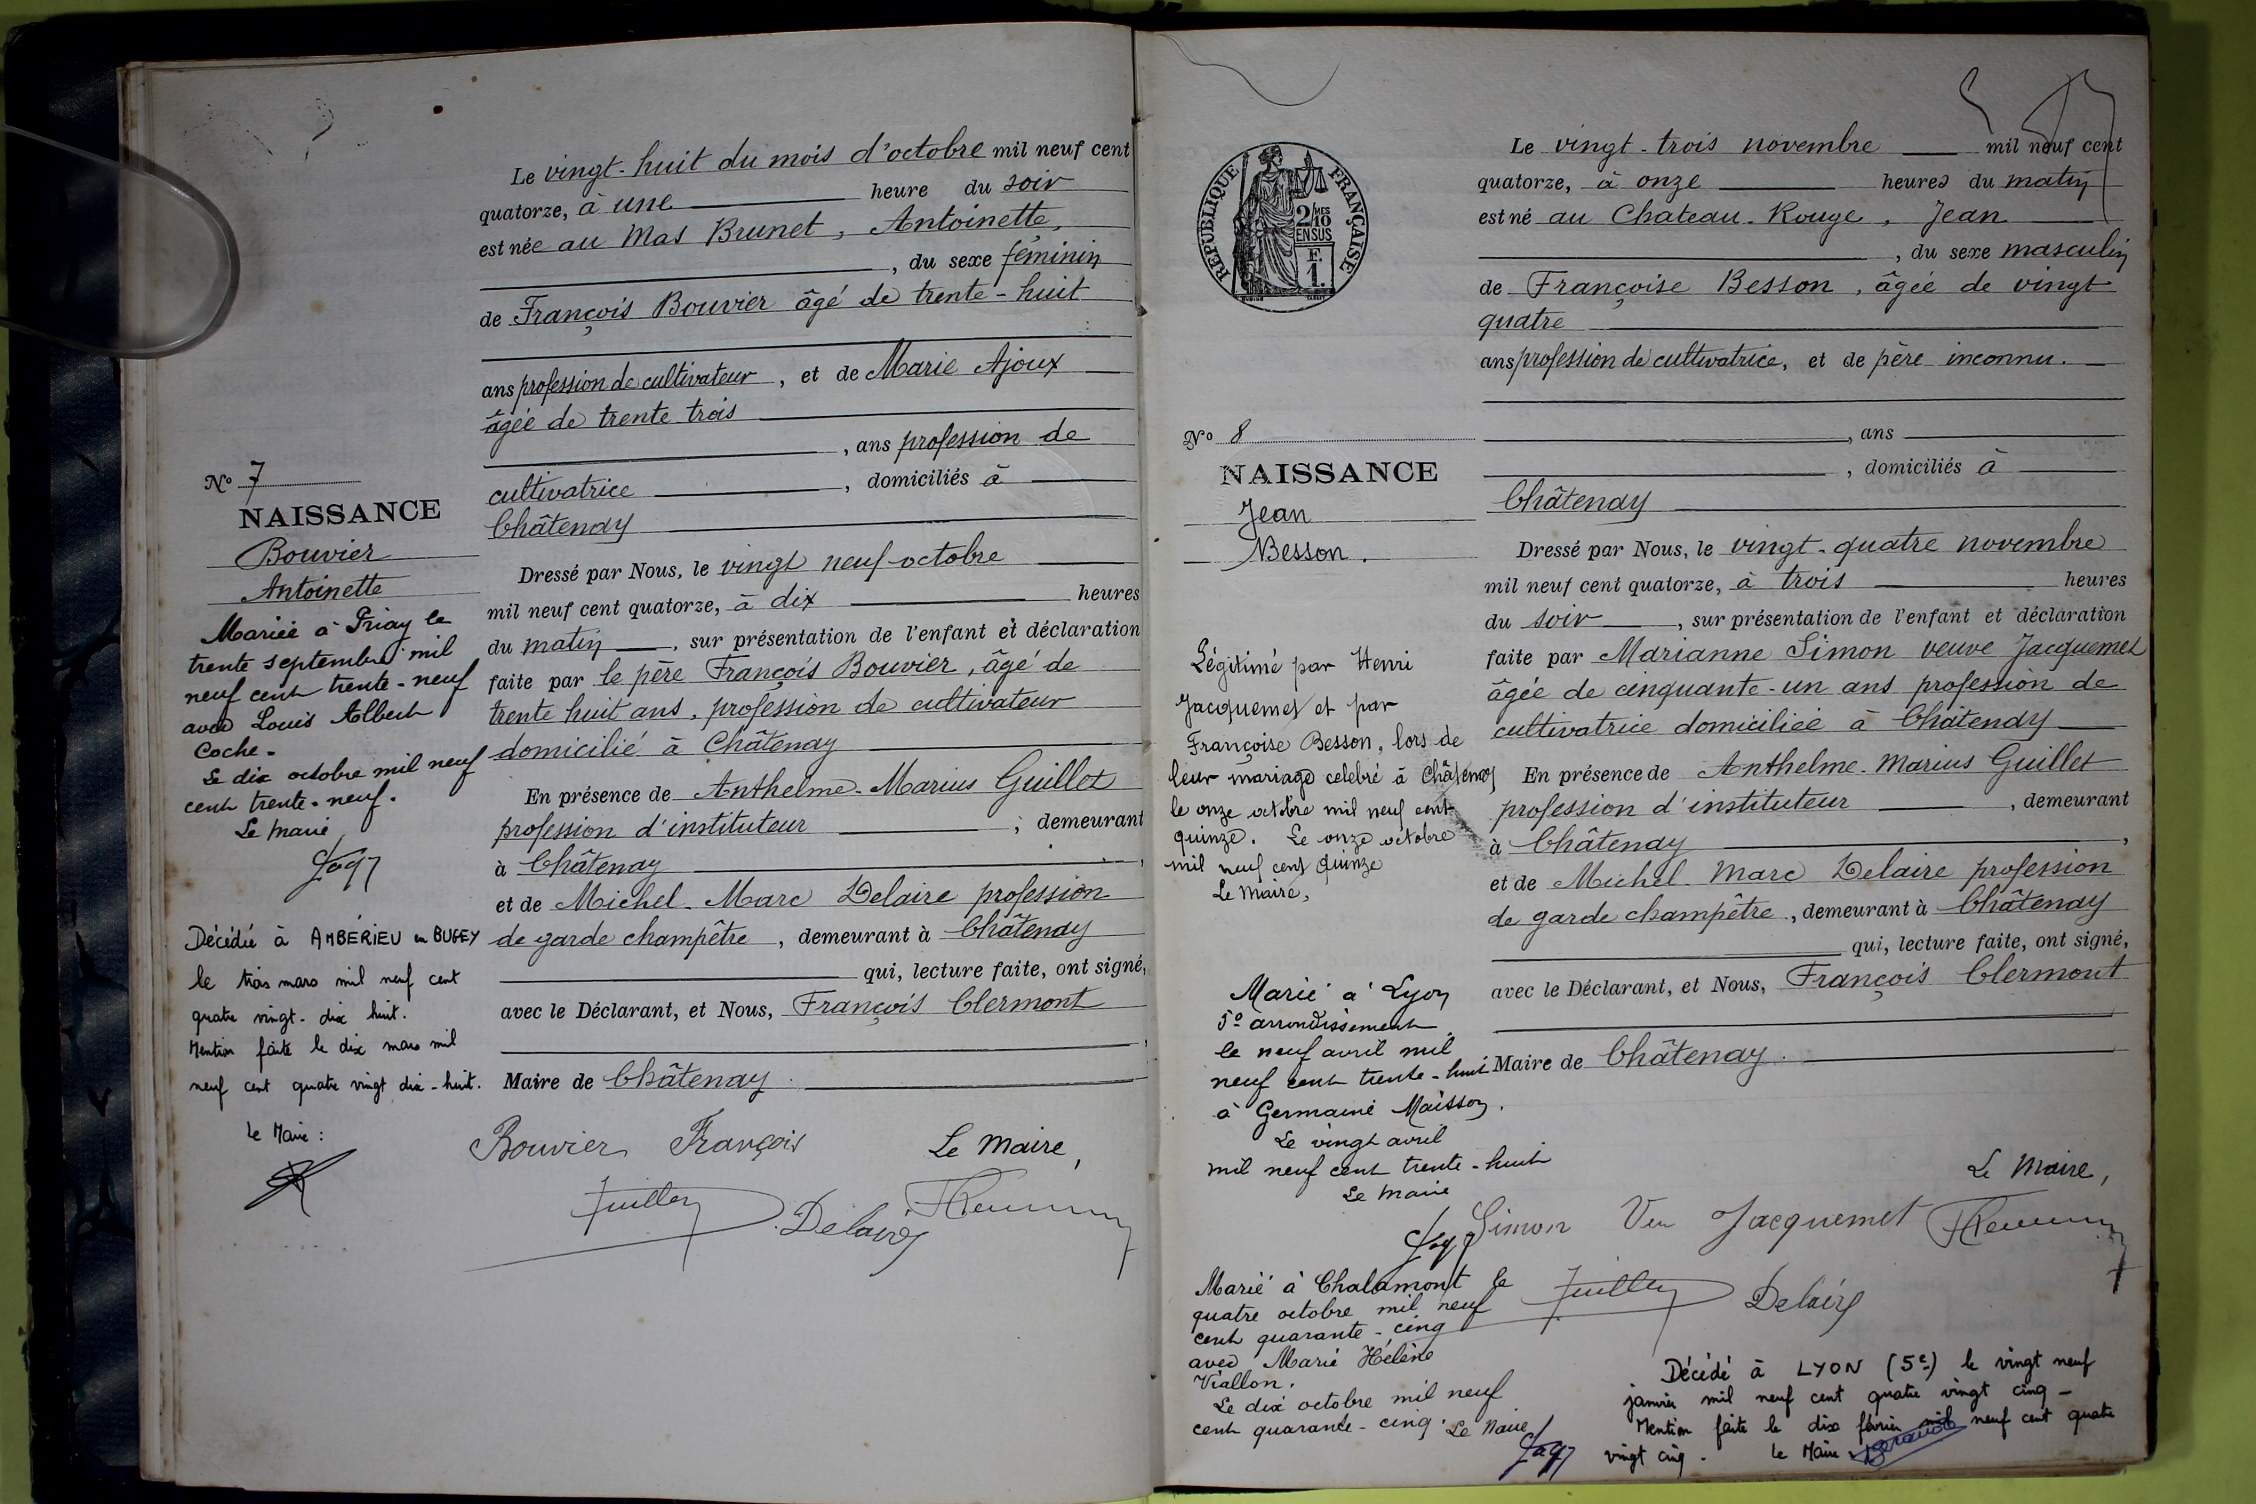 Le vingt-huit du mois d'octobre mil neuf cent
quatorze, à une heure du soir
est née au Mas Brunet, Antoinette,
, du sexe féminin
de François Bouvier âgé de trente-huit
ans profession de cultivateur, et de Marie Ajoux
âgée de trente trois
, ans profession de
cultivatrice, domiciliés à
Châtenay
Dressé par Nous, le vingt neuf octobre
mil neuf cent quatorze, à dix heures
du matin, sur présentation de l'enfant et déclaration
faite par le père François Bouvier, âgé de
trente huit ans, profession de cultivateur
domicilié à Châtenay
En présence de Anthelme-Marius Guillet
profession d'instituteur, demeurant
à Châtenay,
et de Michel-Marc Delaire profession
de garde champêtre, demeurant à Châtenay
qui, lecture faite, ont signé,
avec le Déclarant, et Nous, François Clermont
,
Maire de Châtenay.
Bouvier François Le Maire,
Delaire
No 7
NAISSANCE
Bouvier
Antoinette
Mariée à Priay le
trente septembre mil
neuf cent trente-neuf
avec Louis Albert
Coche.
Le dix octobre mil neuf
cent trente-neuf.
Le Maire
Décédée à AMBÉRIEU en BUGEY
le trois mars mil neuf cent
quatre vingt-dix huit.
Mention faite le dix mars mil
neuf cent quatre vingt dix-huit.
Le Maire :
RÉPUBLIQUE FRANÇAISE
2/10 MES
EN SUS
F.
1.
Le vingt-trois novembre mil neuf cent
quatorze, à onze heures du matin
est né au Chateau-Rouge, Jean
, du sexe masculin
de Françoise Besson, âgée de vingt
quatre
ans profession de cultivatrice, et de père inconnu.
, ans
, domiciliés à
Châtenay
Dressé par Nous, le vingt-quatre novembre
mil neuf cent quatorze, à trois heures
du soir, sur présentation de l'enfant et déclaration
faite par Marianne Simon veuve Jacquemet
âgée de cinquante-un ans profession de
cultivatrice domiciliée à Châtenay
En présence de Anthelme-Marius Guillet
profession d'instituteur, demeurant
à Châtenay,
et de Michel-Marc Delaire profession
de garde champêtre, demeurant à Châtenay
qui, lecture faite, ont signé,
avec le Déclarant, et Nous, François Clermont
Maire de Châtenay.
Le Maire,
Simon Vve Jacquemet
Delaire
No 8
NAISSANCE
Jean
Besson.
Légitimé par Henri
Jacquemet et par
Françoise Besson, lors de
leur mariage célebré à Châtenay
le onze octobre mil neuf cent
quinze. Le onze octobre
mil neuf cent quinze
Le Maire,
Marié à Lyon
5e arrondissement
le neuf avril mil
neuf cent trente-huit
à Germaine Maisson.
Le vingt avril
mil neuf cent trente-huit
Le Maire
Marié à Chalamont le
quatre octobre mil neuf
cent quarante-cinq
avec Marie Hélène
Viallon.
Le dix octobre mil neuf
cent quarante-cinq. Le Maire
Décédé à LYON (5e) le vingt neuf
janvier mil neuf cent quatre vingt cinq -
Mention faite le dix février mil neuf cent quatre
vingt cinq. Le Maire